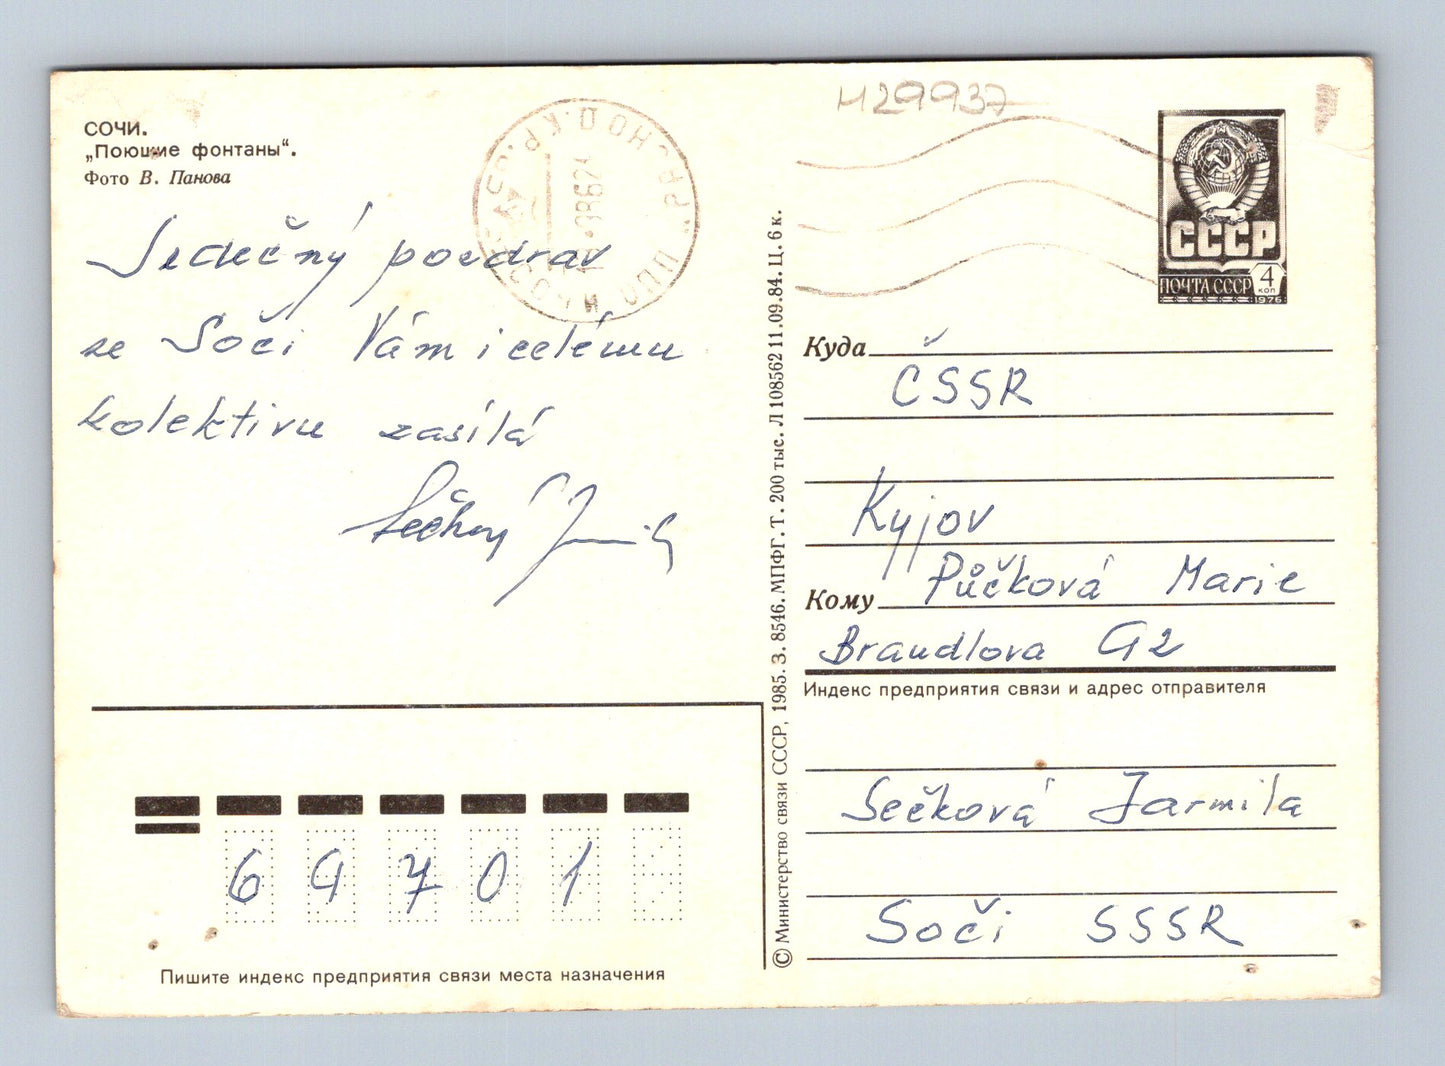 СОЧИ.
„Поющие фонтаны“.
Фото В. Панова
Srdečný pozdrav
ze Soči Vám i celému
kolektivu zasílá
6 9 7 0 1
Пишите индекс предприятия связи места назначения
© Министерство связи СССР, 1985. З. 8546. МПФГ. Т. 200 тыс. Л 108562 11.09.84. Ц. 6 к.
И29937
СССР
ПОЧТА СССР
4
коп
1976
Куда
ČSSR
Kyjov
Кому Půčková Marie
Braudlova 92
Индекс предприятия связи и адрес отправителя
Sečková Jarmila
Soči SSSR